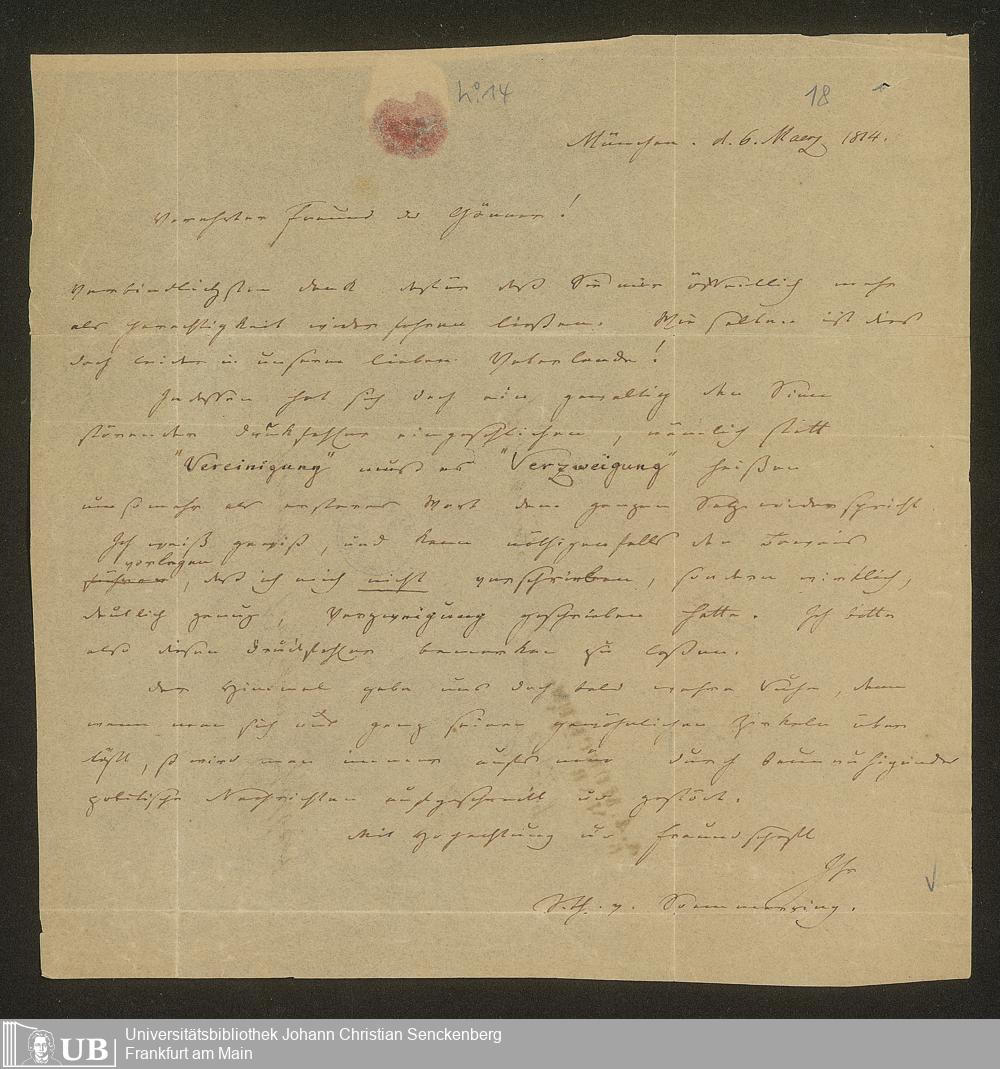 No 14
18
München. d. 6. Maerz 1814.
Verehrter Freund und Gönner!
Verbindlichsten Dank dafür daß Sie mir öffentlich mehr
als Gerechtigkeit wiederfahren ließen. Wie selten ist dies
doch leider in unserm lieben Vaterlande!
Indessen hat sich doch ein gewaltig den Sinn
störender Druckfehler eingeschlichen, nämlich statt
"Vereinigung" muß es "Verzweigung" heißen
umsomehr als ersteres Wort dem ganzen Satze widerspricht.
Ich weiß gewiß, und kann nöthigenfalls den Beweis
vorlegen
führen, daß ich mich nicht verschrieben, sondern wirklich,
deutlich genug, Verzweigung geschrieben hatte. Ich bitte
also diesen Druckfehler bemerken zu laßen.
Der Himmel gebe uns doch bald mehr Ruhe, denn
wenn man sich nur ganz seinen gewöhnlichen Zirkeln über
läßt, so wird man immer aufs neue durch beunruhigende
politische Nachrichten aufgeschreckt und gestört.
Mit Hochachtung und Freundschaft
Ihr
S. Th. v. Soemmerring.
UB
Universitätsbibliothek Johann Christian Senckenberg
Frankfurt am Main